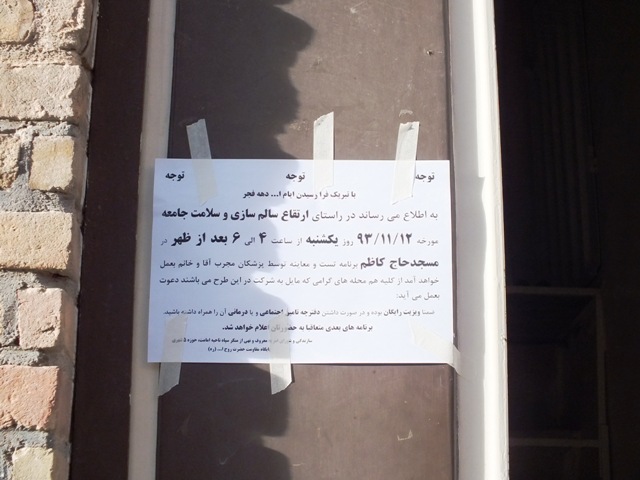 توجه توجه توجه
با تبریک فرا رسیدن ایام ا... دهه فجر
به اطلاع می رساند در راستای ارتقاع سالم سازی و سلامت جامعه
مورخه ۹۳/۱۱/۱۲ روز یکشنبه از ساعت ۴ الی ۶ بعد از ظهر در
مسجدحاج کاظم برنامه تست و معاینه توسط پزشکان مجرب آقا و خانم بعمل
خواهد آمد از کلیه هم محله های گرامی که مایل به شرکت در این طرح می باشند دعوت
بعمل می آید:
ضمنا ویزیت رایگان بوده و در صورت داشتن دفترچه تامین اجتماعی و یا درمانی آن را همراه داشته باشید.
برنامه های بعدی متعاقبا به حضورتان اعلام خواهد شد.
معروف و نهی از منکر سپاه ناحیه امامت، حوزه ۵
پایگاه مقاومت حضرت روح ا... (ره)